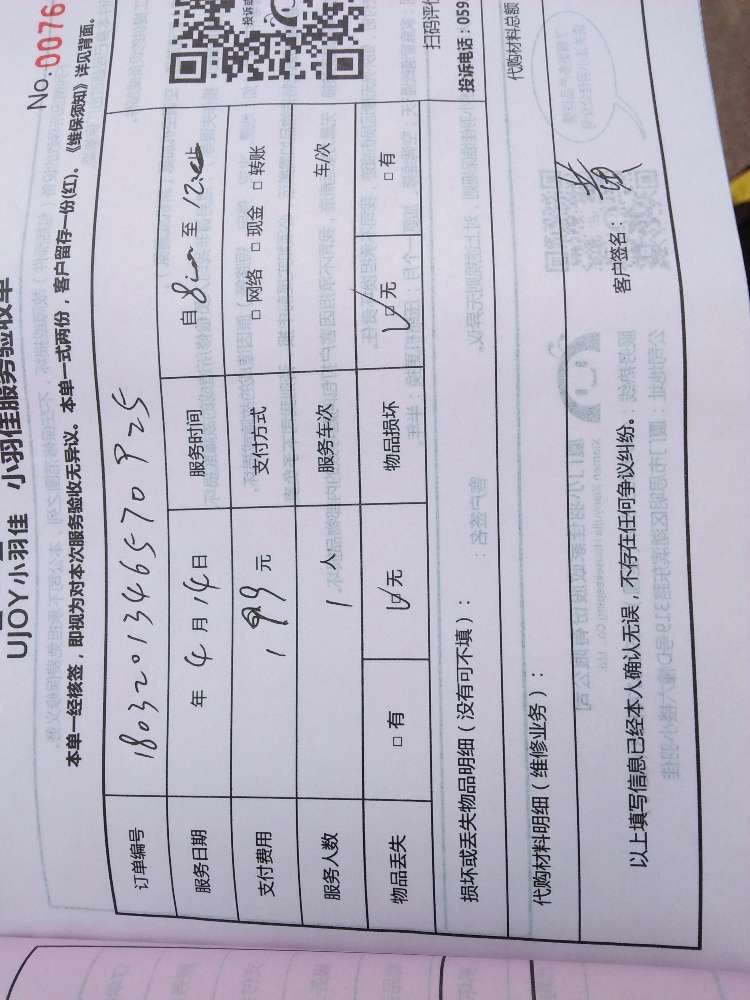 No.0076
UJOY小羽佳 小羽佳服务验收单
本单一经核签，即视为对本次服务验收无异议。本单一式两份，客户留存一份(红)。《维保须知》详见背面。
订单编号 1803201346570925
服务日期 年 4 月 14 日 服务时间 自 8:00 至 12:00止
支付费用 199 元 支付方式 □ 网络 □ 现金 □ 转账
服务人数 1 人 服务车次 车/次
物品丢失 □ 有 ☑ 无 物品损坏 ☑ 无 □ 有
扫码评价
损坏或丢失物品明细（没有可不填）：
投诉电话：059
代购材料明细（维修业务）： 代购材料总额
以上填写信息已经本人确认无误，不存在任何争议纠纷。 客户签名： 黄